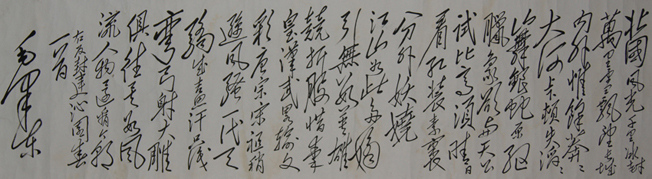 北國風光千里冰封
萬里雪飄望長城
内外惟餘莽〻
大河上下頓失滔〻
山舞銀蛇原驅
臘象欲與天公
試比高須晴日
看紅裝素裹
分外妖嬈
江山如此多嬌
引無數英雄
競折腰惜秦
皇漢武略輸文
彩唐宗宋祖稍
遜風騷一代天
驕成吉思汗只識
彎弓射大雕
俱往矣數風
流人物還看今朝
右反封建沁園春
一首
毛澤東